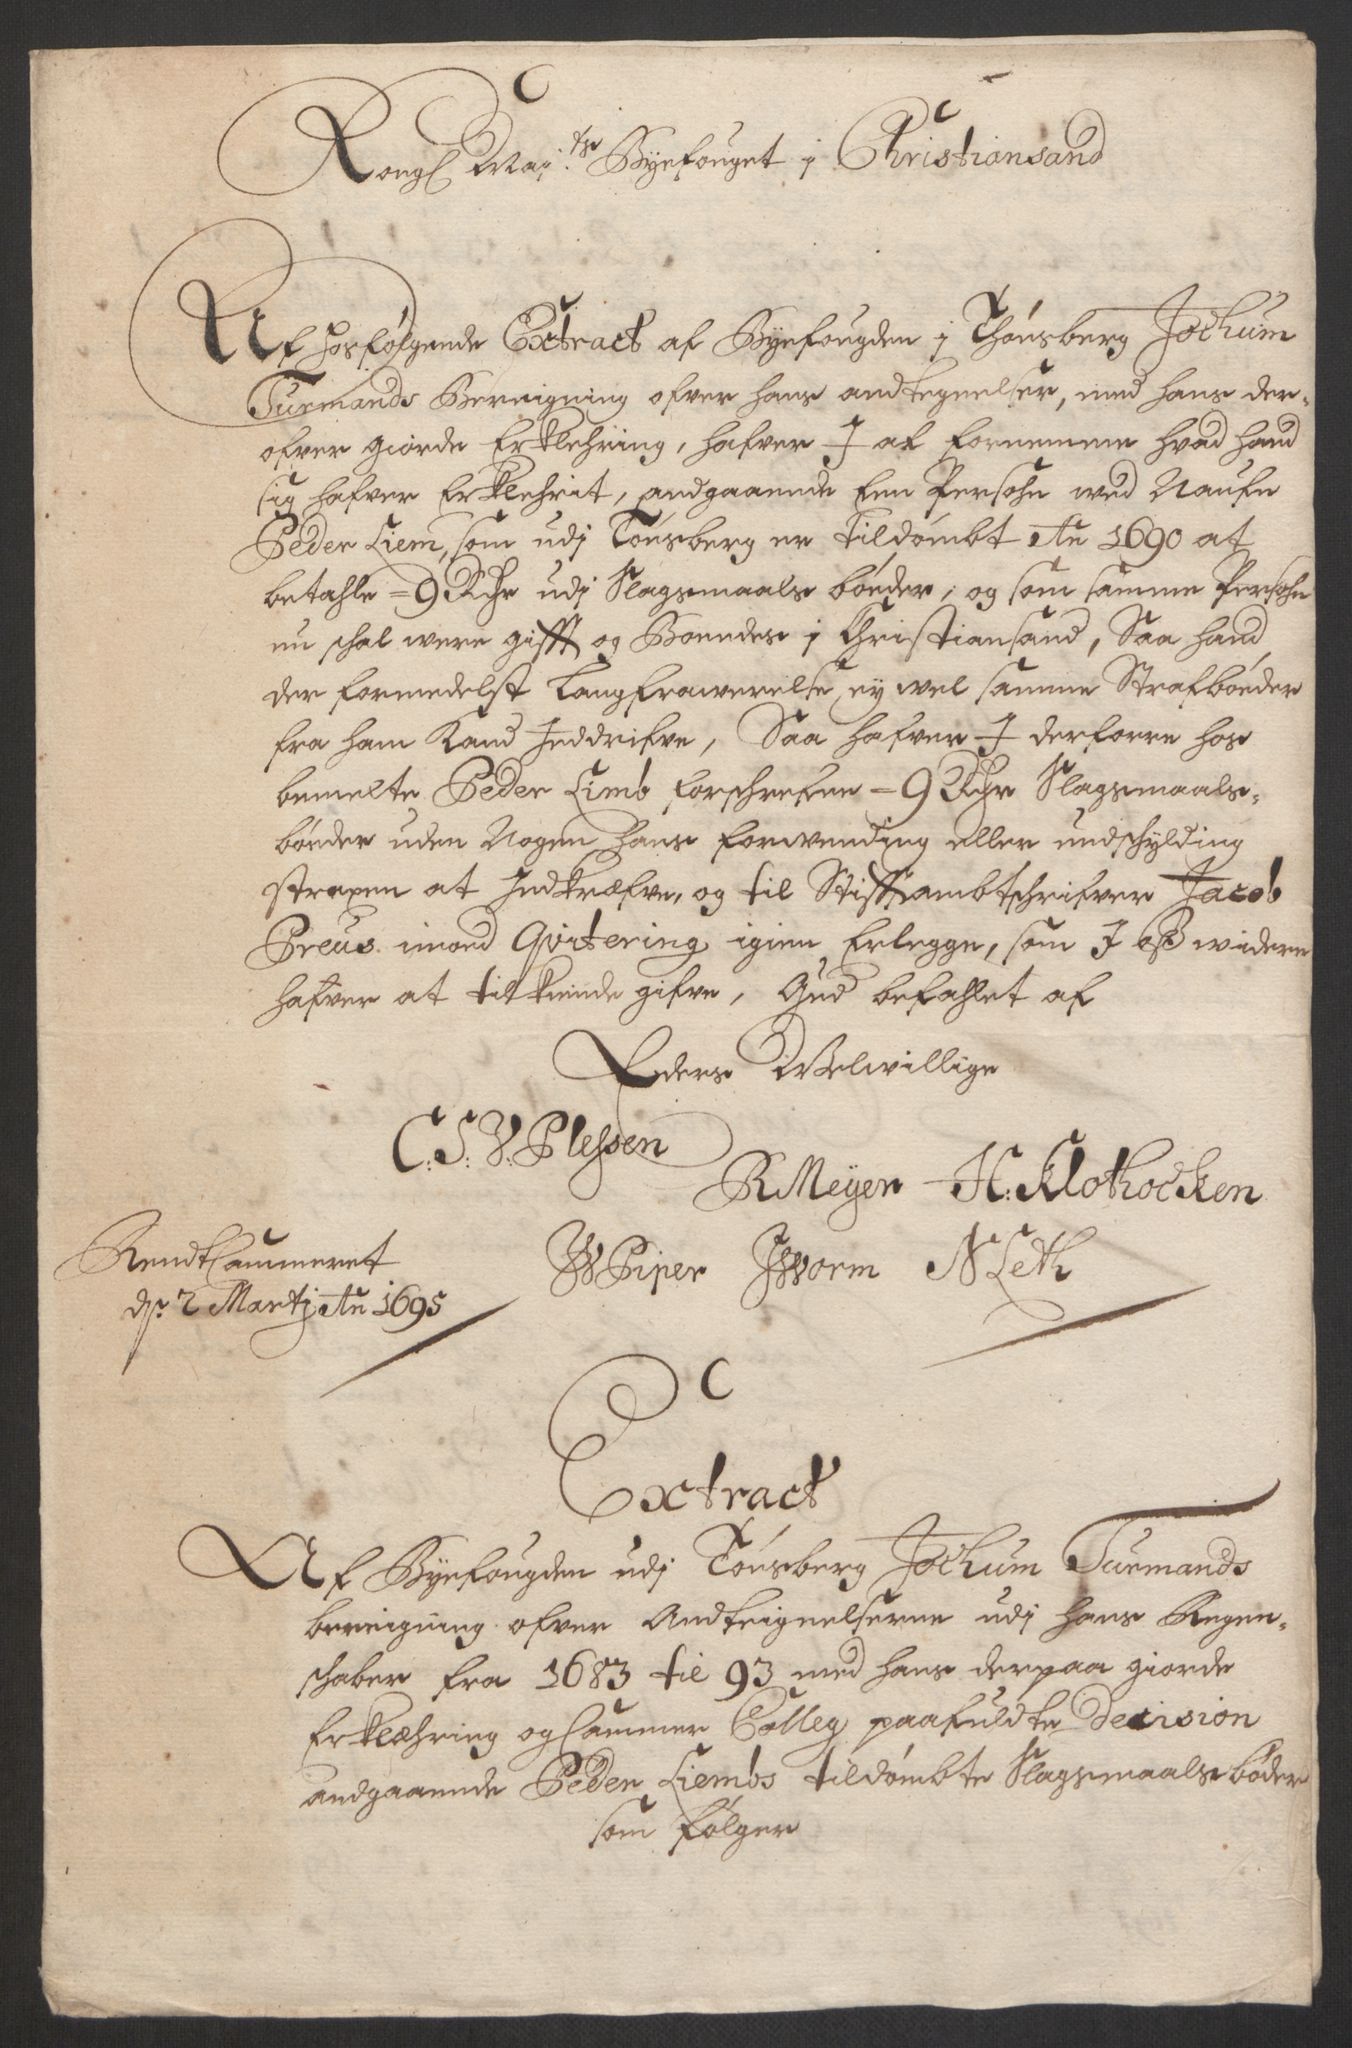 Kongl May:ts Byefouget i Christiansand
Af hosfølgende Extract af Byefougden i Thónsberg Jochum
Turmands Bereigning ofver hans andtegnelser, med hans der-
ofver giorde Erklehring, hafver I at fornemme hvad hand
sig hafver Erklehrit, andgaaende Een Persohn wed Naufn
Peder Liem, som udj Tónsberg er tildómbt Ao 1690 at
betahle = 9 Rdr udj Slagsmaals bóeder, og som samme Persohn
nu schal were gifft og Boendes i Christiansand, Saa hand
der formedelst Langfrawerelse ey wel samme Strafbóeder
fra ham Kand Inddrifve, Saa hafver I derforre hos
bemelte Peder Limb forschrefne = 9 Rdr Slagsmaals-
bónder uden Nogen hans forwending eller undschylding
straxen at Indkræfve, og til Stifftambtschrifver Jacob
Preus imod Qvitering igien Erlegge, som I oß widere
hafver at tilkiende gifve, Gud befahlet af
Eders Welwillige
C: S: V: Plessen
R Meyer H: Klothocken
W Piper J Worm N Leth
RendtCammeret
ds 2 Martj Ao 1695
Extract
Af Byefougden udj Tónsberg Jochum Turmands
bereigning ofver Andteignelserne udj hans Regen-
schaber fra 1683 til 93 med hans derpaa giorde
Erklæhring og Cammer Colleg paafuldte Decision
andgaaende Peder Liembs tildómbte Slagsmaals bóder
som følger